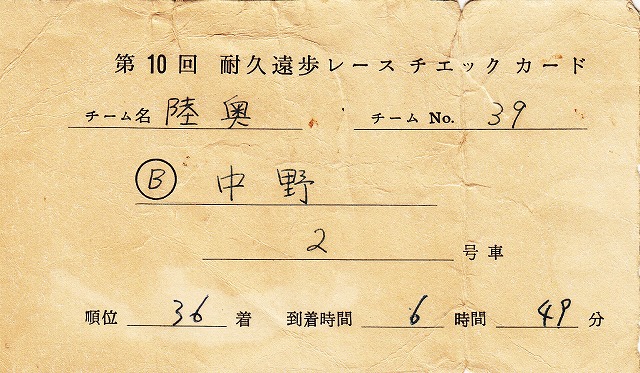 第10回 耐久遠歩レースチエックカード
チーム名 陸奥 チーム No. 39
Ⓑ 中野
2 号車
順位 36 着 到着時間 6 時間 49 分